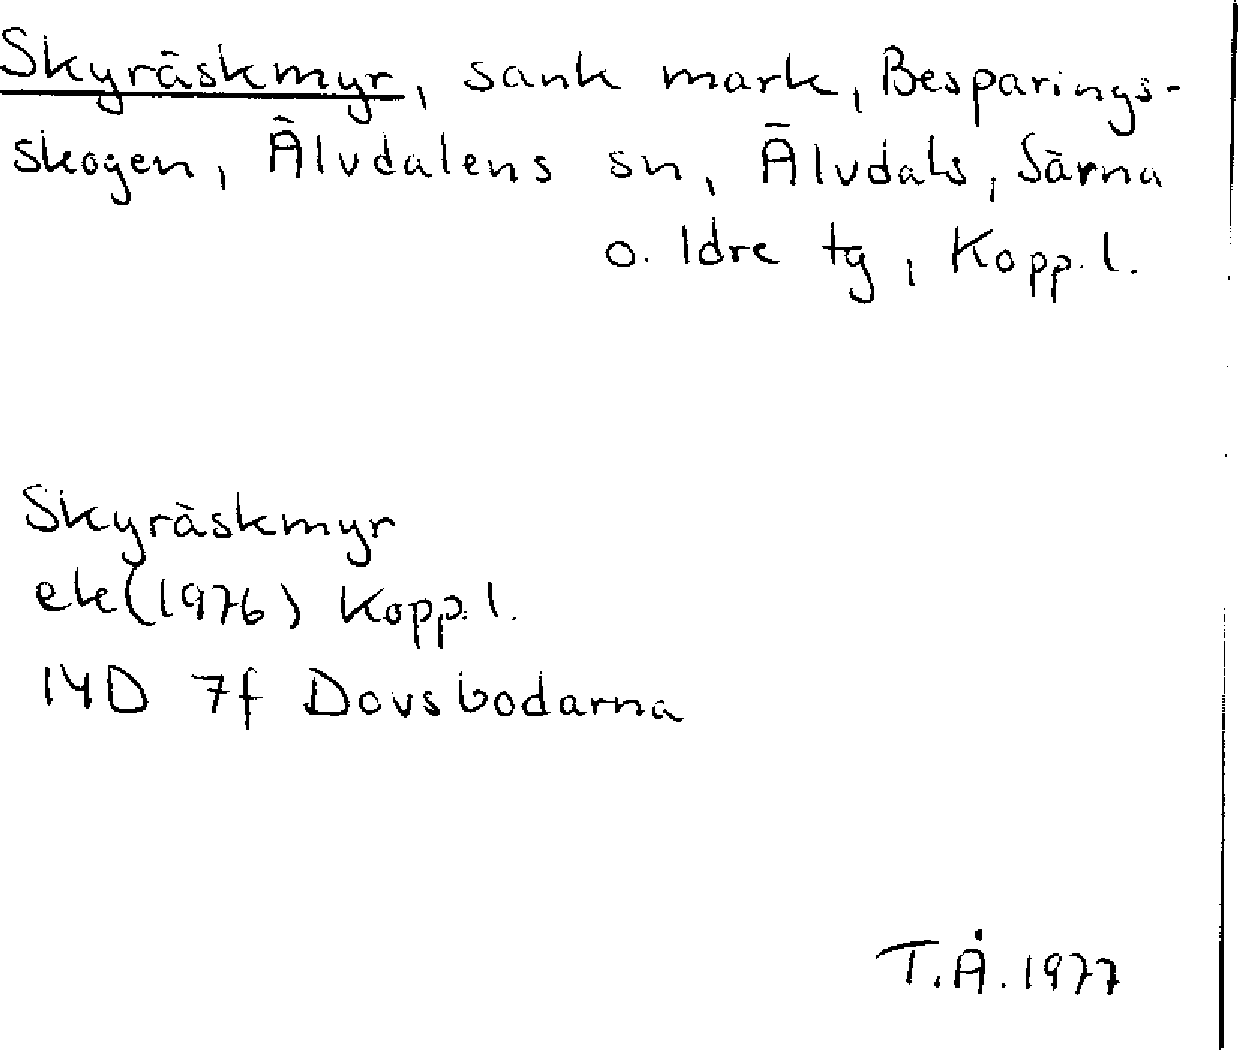 Skyräskmyr, sank mark, Besparings-
skogen, Älvdalens sn, Älvdals, Särna
o. Idre tg, Kopp. l.
Skyräskmyr
ek (1976) Kopp. l.
14D 7f Dovsbodarna
T.Å. 1977